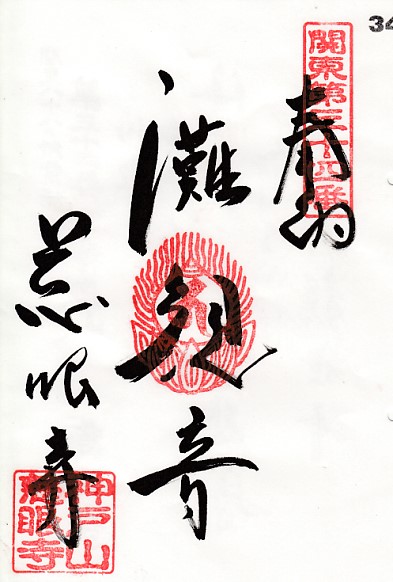 34
関東第三十四番
奉納
灘観音
慈眼寺
神戸山
慈眼寺